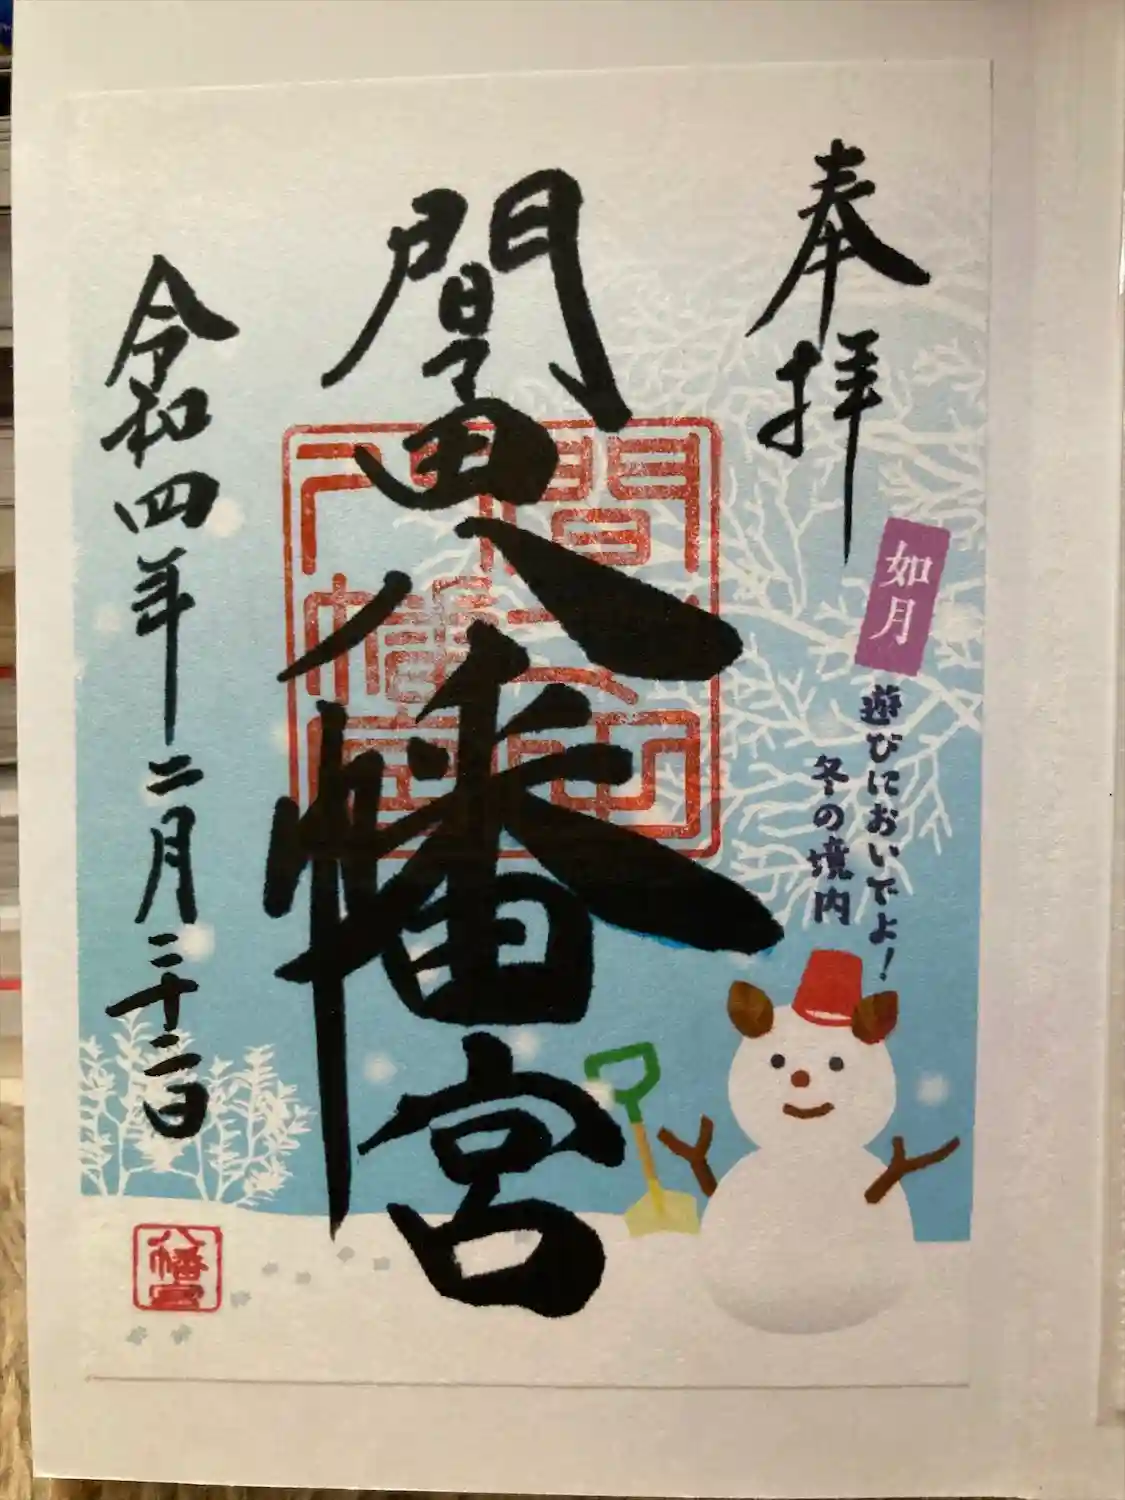 奉拝
如月
遊びにおいでよ!
冬の境内
間々田八幡宮
令和四年二月二十二日
八幡宮